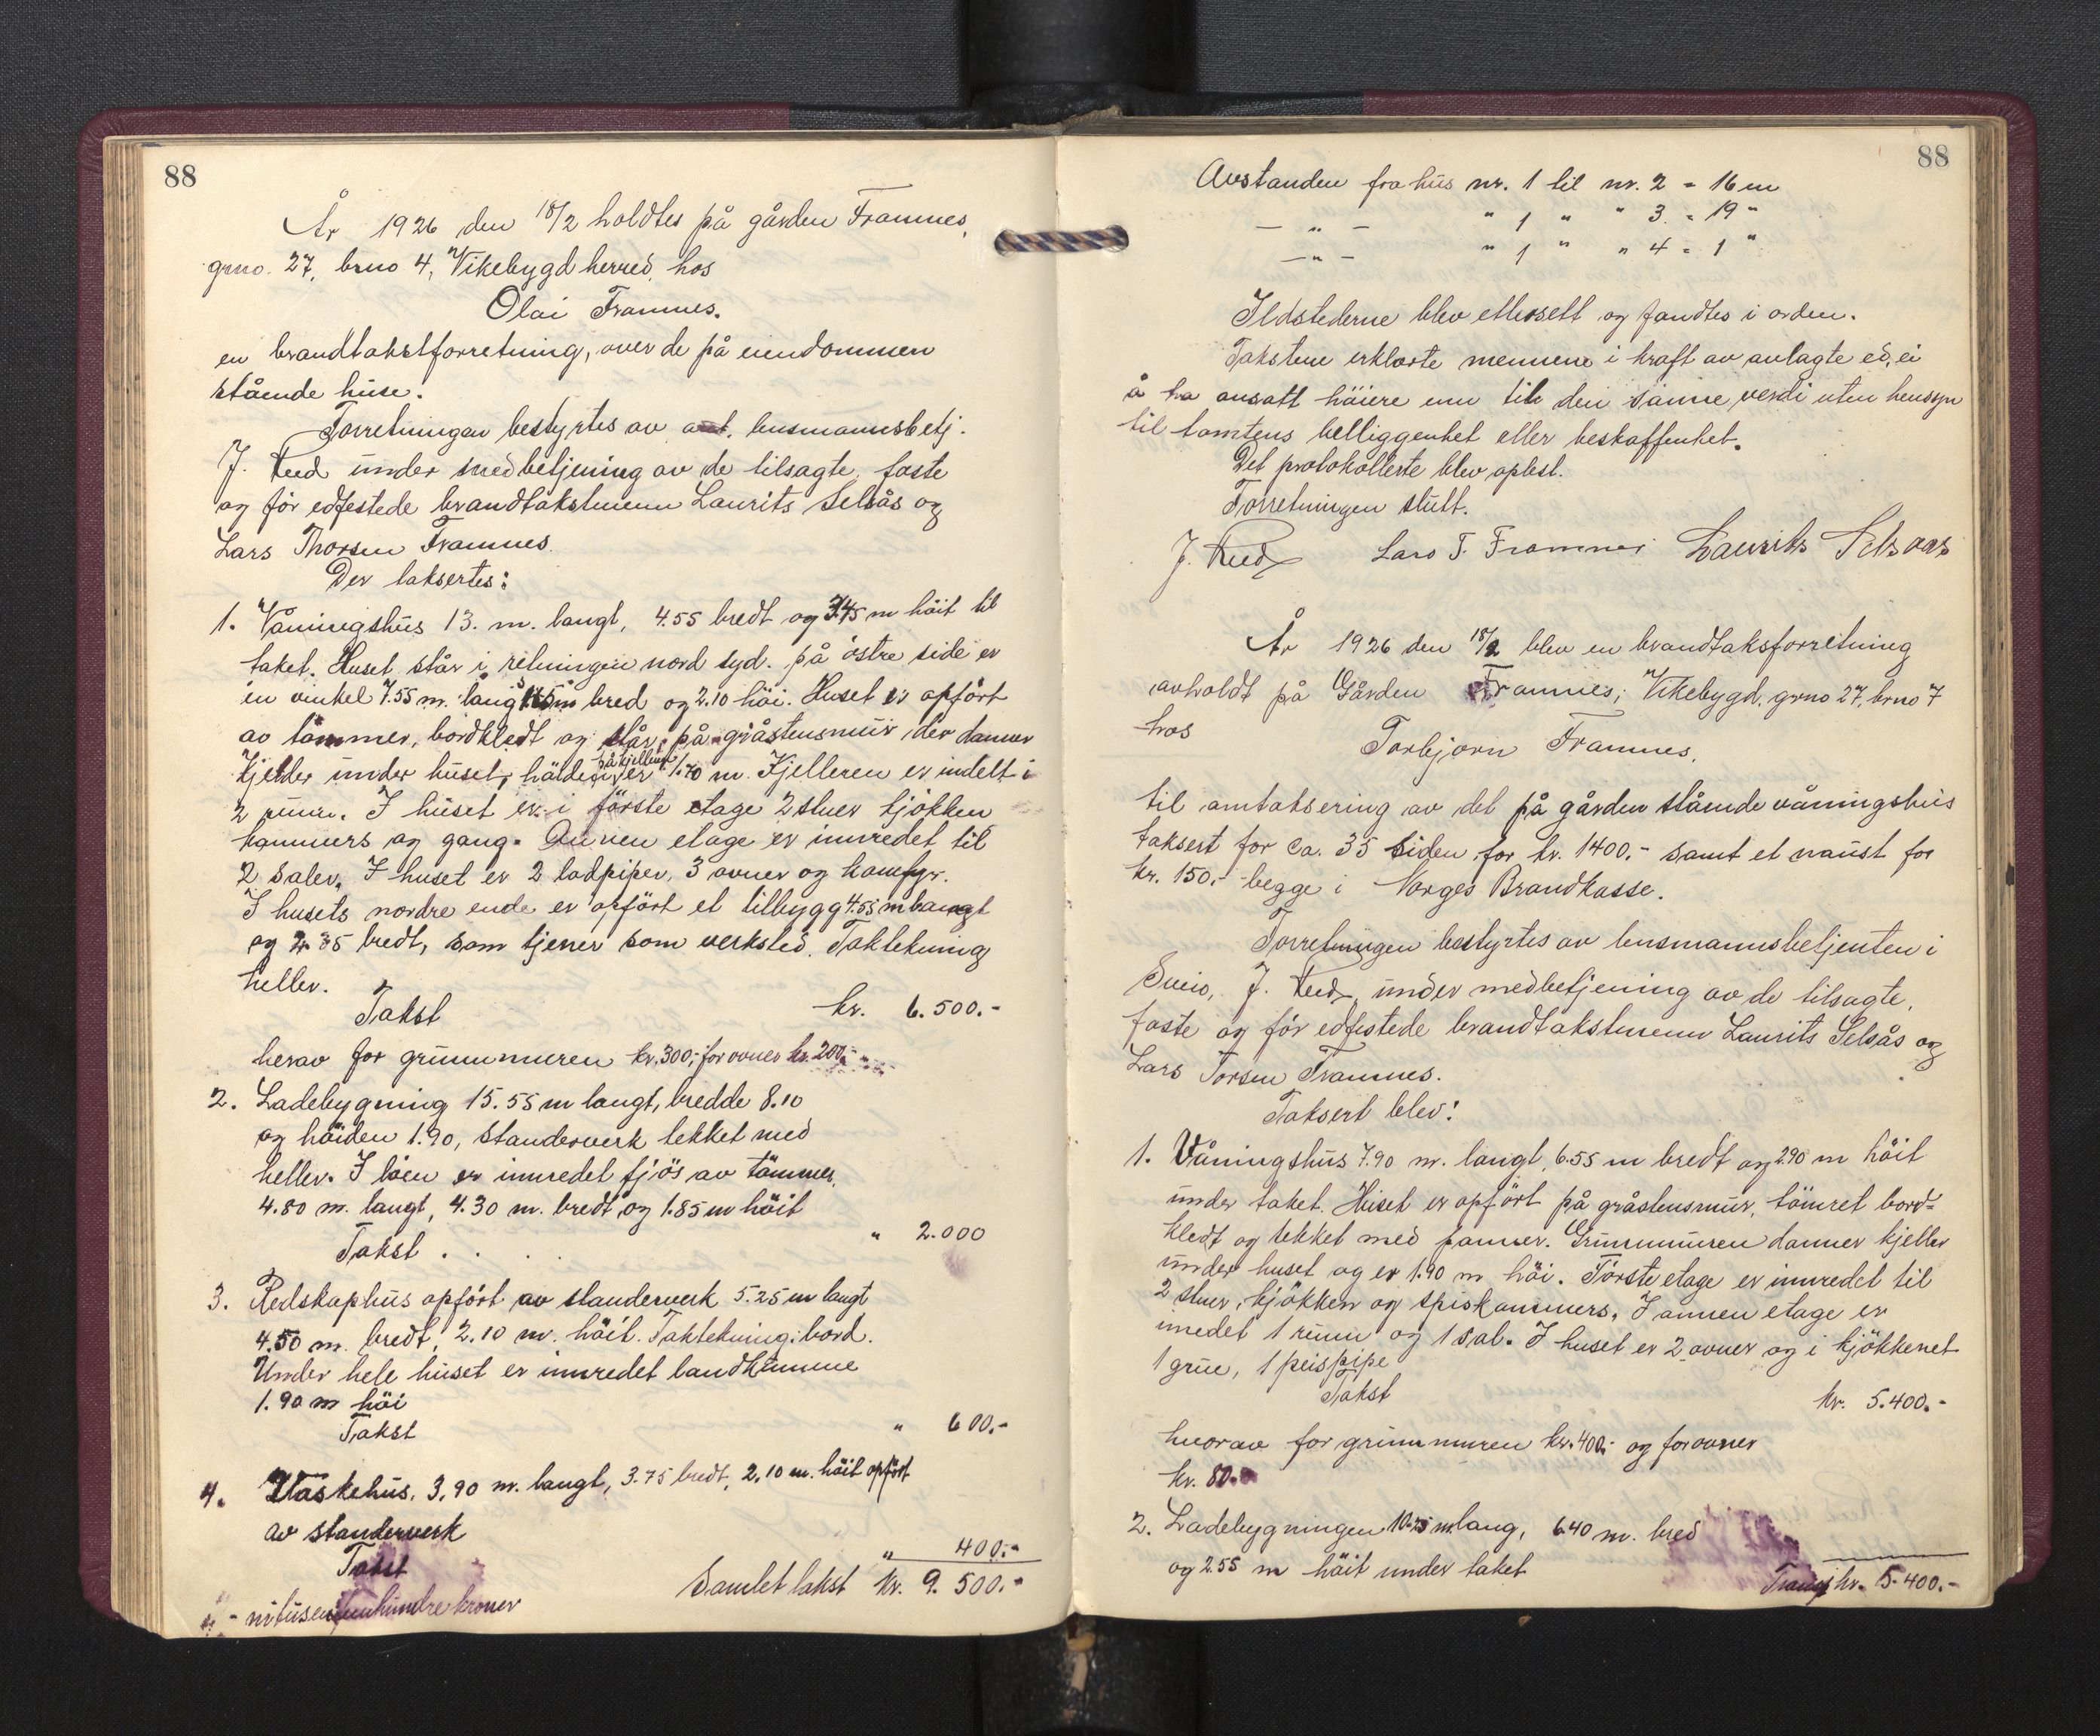 88
År 1926 den 18/2 holdtes på gården Framnes,
grno. 27, brno 4, Vikebygd herred, hos
Olai Framnes.
en brandtakstforretning, over de på eiendommen
stående huse.
Forretningen bestyrtes av lensmannsbetj.
J. under medbetjening av de tilsagte, faste
og før edfestede brandtakstmenn Laurits Selsås og
Lars Thorsen Framnes.
Der taksertes:
1. Våningshus 13. m. langt, 4.55 bredt og 3.45 m höit til
taket. Huset står i retningen nord syd. på östre side er
en vinkel 7.55 m. lang bred og 2.10 höi. Huset er opfört
av tömmer, bordkledt og står på gråstensmur, der danner
kjelder under huset, höiden på kjelleren er 1.70 m. Kjelleren er indelt i
2 rum. I huset er i förste etage 2 stuer kjökken
kammers og gang. Annen etage er innredet til
2 saler. I huset er 2 lodpiper, 3 ovner og komfyr.
I husets nordre ende er opfört et tilbygg 4.55 m langt
og 2.85 bredt, som tjener som verksted. Taktekning
heller.
Takst kr. 6.500.-
herav for grunnmuren kr. 300,- for ovner kr. 200.-
2. Ladebygning 15.55 m langt, bredde 8.10
og höiden 1.90, standerverk tekket med
heller. I löen er innredet fjös av tömmer,
4.80 m. langt, 4.30 m. bredt og 1.85 m höit
Takst . . . " 2.000
3. Redskaphus opfört av standerverk 5.25 m langt
4.50 m. bredt, 2.10 m. höit. Taktekning: bord.
Under hele huset er innredet landkumme
1.90 m höi
Takst " 600.-
4. Vaskehus. 3,90 m. langt, 3.75 bredt, 2.10 m. höit opfört
av standerverk
Takst " 400.-
Samlet takst kr. 9.500.-
- nitusenfemhundre kroner
88
Avstanden fra hus nr. 1 til nr. 2 = 16 m
— " — " 1 " " 3. = 19 "
— " — " 1 " " 4 = 1 "
Ildstederne blev ettersett og fandtes i orden.
Takstene erklærte mennene i kraft av avlagte ed, ei
å ha ansatt höiere enn til den sanne verdi uten hensyn
til tomtens belliggenhet eller beskaffenhet.
Det protokollerte blev oplest.
Forretningen slutt.
J. Lars T. Framnes Laurits Selsaas
År 1926 den 18/2 blev en brandtaksforretning
avholdt på Gården Framnes; Vikebygd, grno 27, brno 7
hos
Torbjørn Framnes,
til omtaksering av det på gården stående våningshus
taksert for ca. 35 siden for kr. 1400.- samt et naust for
kr. 150.- begge i Norges Brandkasse.
Forretningen bestyrtes av lensmannsbetjenten i
Sveio, J. under medbetjening av de tilsagte,
faste og før edfestede brandtakstmenn Laurits Selsås og
Lars Torsen Framnes.
Taksert blev:
1. Våningshus 7.90 m. langt, 6.55 m bredt og 2.90 m höit
under taket. Huset er opfört på gråstensmur, tömret bord-
kledt og tekket med panner. Grunnmuren danner kjeller
under huset og er 1.90 m höi. Förste etage er innredet til
2 stuer, kjökken og spiskammers. I annen etage er
inredet 1 rum og 1 sal. I huset er 2 ovner og i kjökkenet
1 grue, 1 peispipe
Takst kr. 5.400.-
hvorav for grunnmuren kr. 400.- og for ovner
kr. 80.-
2. Ladebygningen 10.25 m. lang, 6.40 m. bred
og 2.55 m höit under taket
Transp kr. 5.400.-